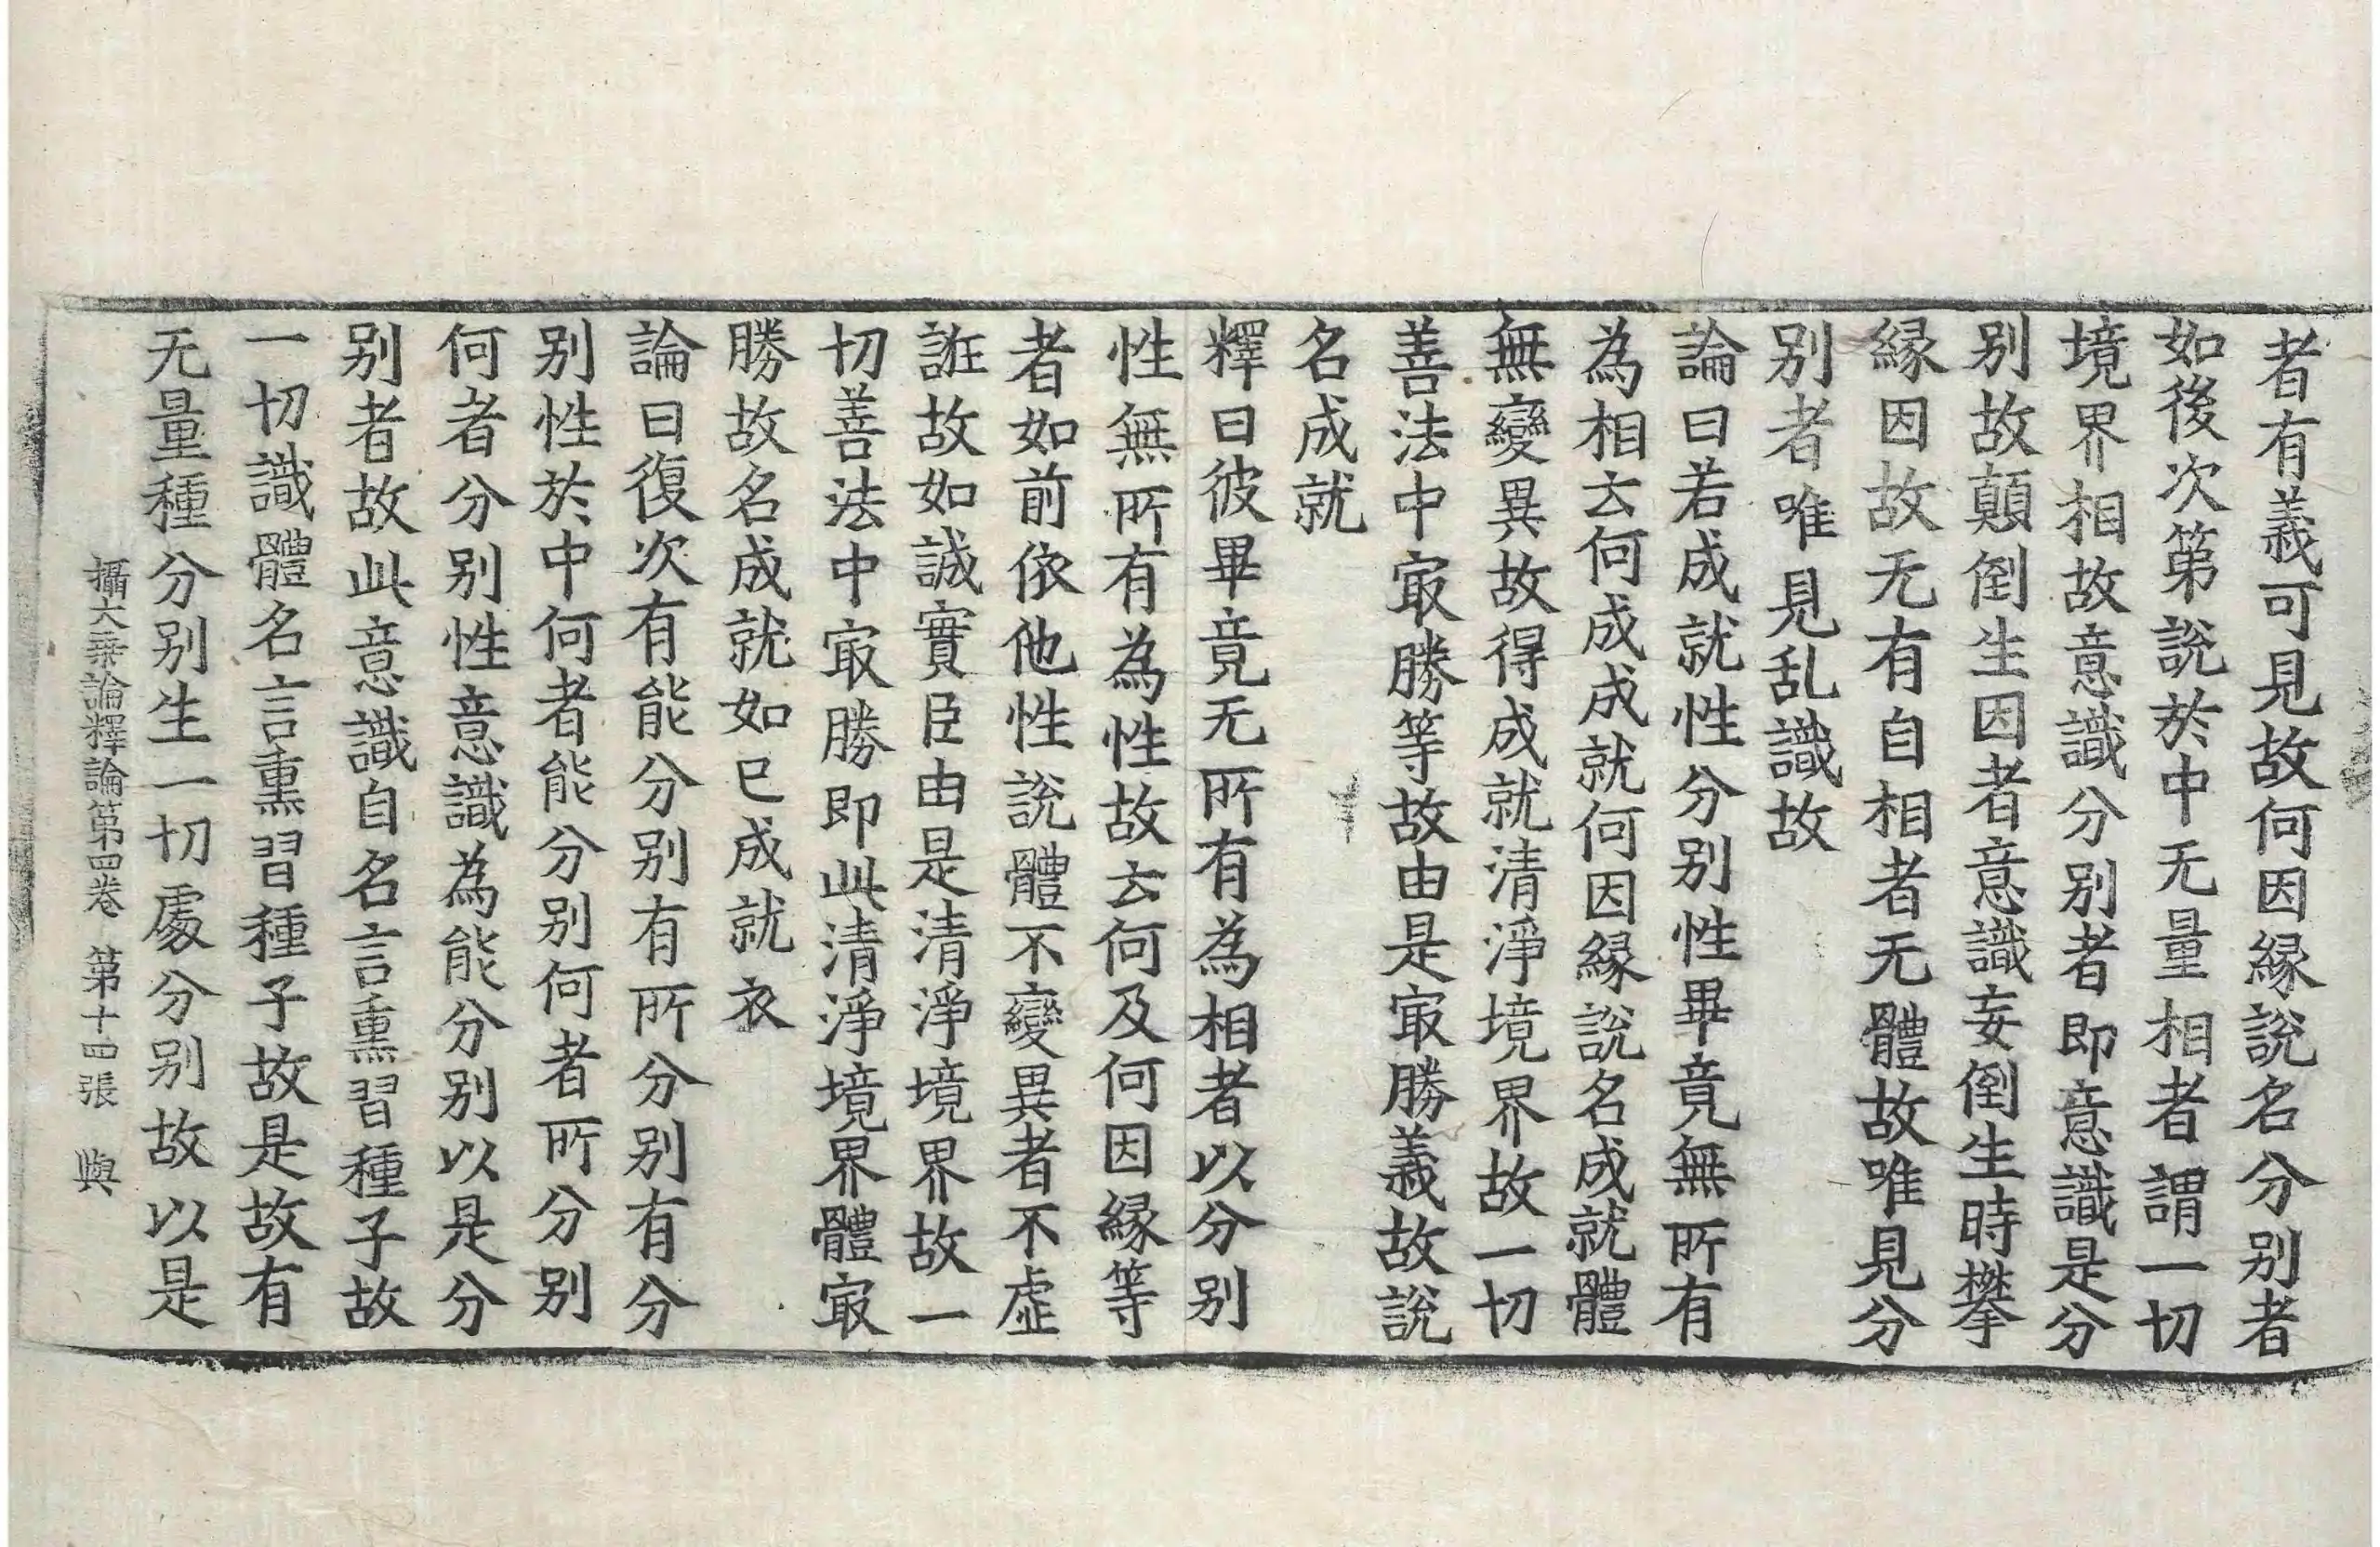 者有義可見故何因縁說名分别者
如後次第說於中无量相者謂一切
境界相故意識分别者即意識是分
别故顛倒生因者意識妄倒生時攀
縁因故无有自相者无體故唯見分
别者唯見乱識故
論曰若成就性分别性畢竟無所有
為相云何成成就何因縁說名成就體
無變異故得成就清淨境界故一切
善法中冣勝等故由是冣勝義故說
名成就
釋曰彼畢竟无所有為相者以分别
性無所有為性故云何及何因縁等
者如前依他性說體不變異者不虛
誑故如誠實臣由是清淨境界故一
切善法中冣勝即此清淨境界體冣
勝故名成就如已成就衣
論曰復次有能分别有所分别有分
别性於中何者能分别何者所分别
何者分别性意識為能分别以是分
别者故此意識自名言熏習種子故
一切識體名言熏習種子故是故有
无量種分别生一切處分别故以是
攝大乗論釋論第四卷 第十四張 與